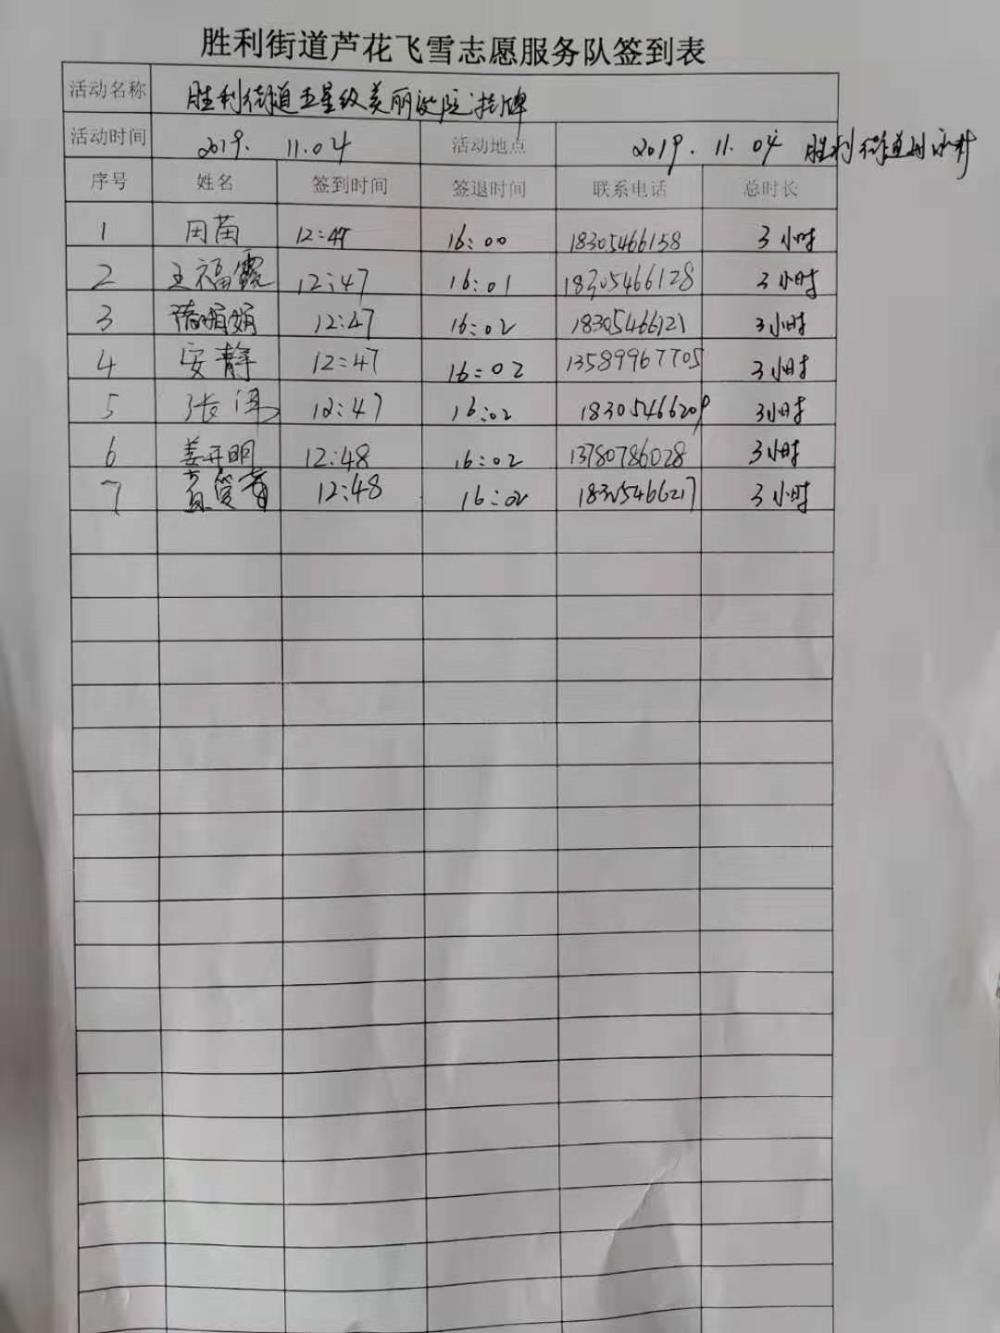 胜利街道芦花飞雪志愿服务队签到表
活动名称 胜利街道五星级美丽庭院挂牌
活动时间 2019. 11.04 活动地点 2019. 11. 04 胜利街道
序号 姓名 签到时间 签退时间 联系电话 总时长
1 田苗 12:45 16:00 18305466158 3小时
2 王福霞 12:47 16:01 18305466128 3小时
3 12:47 16:02 18305466121 3小时
4 安静 12:47 16:02 13589967705 3小时
5 张 12:47 16:02 18305466209 3小时
6 姜开明 12:48 16:02 13780786028 3小时
7 12:48 16:02 18305466217 3小时